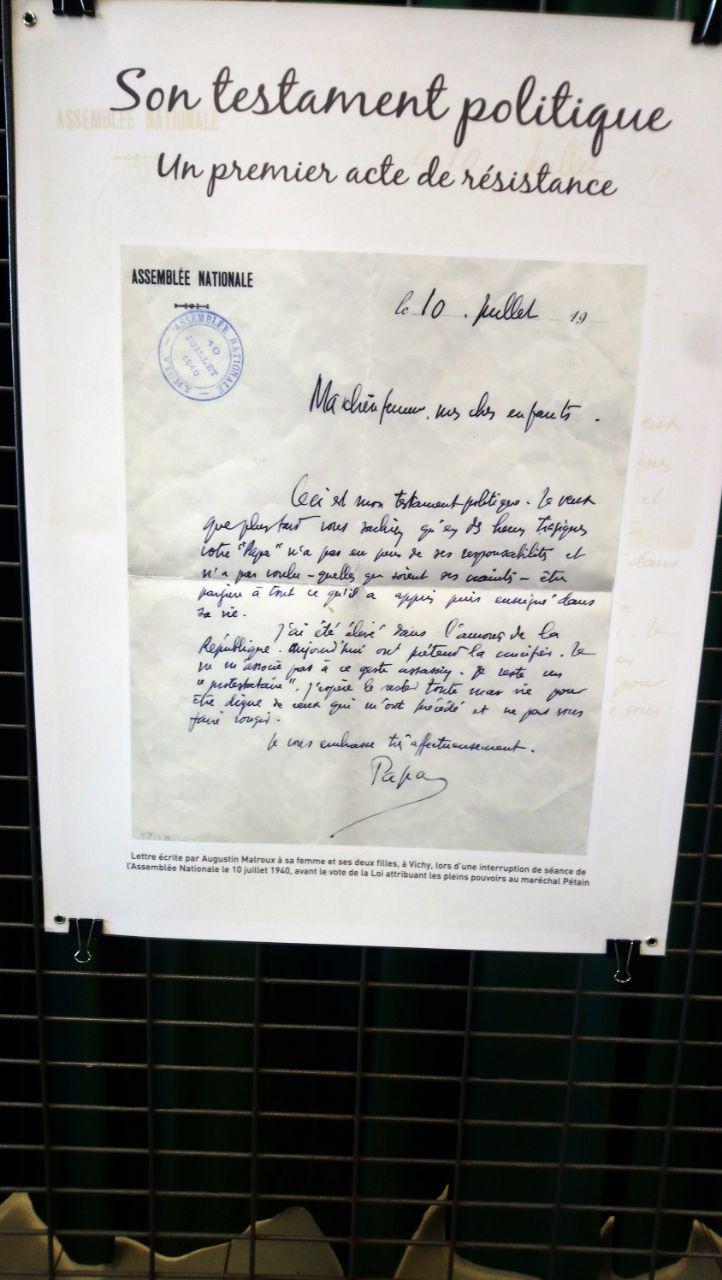 Son testament politique
Un premier acte de résistance
ASSEMBLÉE NATIONALE
le 10 . Juillet 19
ASSEMBLÉE NATIONALE
10
JUILLET
1940
VICHY
Ma chère femme, mes chers enfants.
Ceci est mon testament politique. Je veux
que plus tard vous sachiez qu'en des heures tragiques
votre "Papa" n'a pas eu peur de ses responsabilités et
n'a pas voulu - quelles que soient ses craintes - être
parjure à tout ce qu'il a appris puis enseigné dans
sa vie.
J'ai été élevé dans l'amour de la
République. Aujourd'hui on prétend la crucifier. Je
ne m'associe pas à ce geste assassin. Je reste un
"protestataire". J'espère le rester toute ma vie pour
être digne de ceux qui m'ont précédé et ne pas vous
faire rougir.
Je vous embrasse très affectueusement.
Papa
Lettre écrite par Augustin Malroux à sa femme et ses deux filles, à Vichy, lors d'une interruption de séance de
l'Assemblée Nationale le 10 juillet 1940, avant le vote de la Loi attribuant les pleins pouvoirs au maréchal Pétain